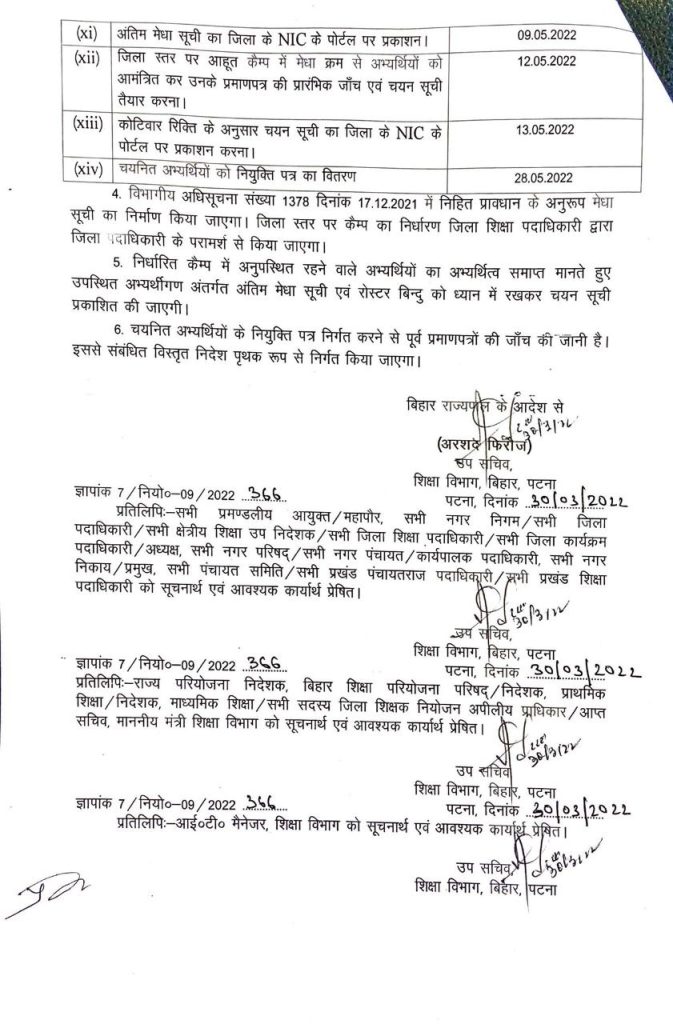 (xi) अंतिम मेधा सूची का जिला के NIC के पोर्टल पर प्रकाशन। 09.05.2022
(xii) जिला स्तर पर आहूत कैम्प में मेधा क्रम से अभ्यर्थियों को 12.05.2022
आमंत्रित कर उनके प्रमाणपत्र की प्रारंभिक जाँच एवं चयन सूची
तैयार करना।
(xiii) कोटिवार रिक्ति के अनुसार चयन सूची का जिला के NIC के 13.05.2022
पोर्टल पर प्रकाशन करना।
(xiv) चयनित अभ्यर्थियों को नियुक्ति पत्र का वितरण 28.05.2022
4. विभागीय अधिसूचना संख्या 1378 दिनांक 17.12.2021 में निहित प्रावधान के अनुरूप मेधा
सूची का निर्माण किया जाएगा। जिला स्तर पर कैम्प का निर्धारण जिला शिक्षा पदाधिकारी द्वारा
जिला पदाधिकारी के परामर्श से किया जाएगा।
5. निर्धारित कैम्प में अनुपस्थित रहने वाले अभ्यर्थियों का अभ्यर्थित्व समाप्त मानते हुए
उपस्थित अभ्यर्थीगण अंतर्गत अंतिम मेधा सूची एवं रोस्टर बिन्दु को ध्यान में रखकर चयन सूची
प्रकाशित की जाएगी।
6. चयनित अभ्यर्थियों के नियुक्ति पत्र निर्गत करने से पूर्व प्रमाणपत्रों की जाँच की जानी है।
इससे संबंधित विस्तृत निदेश पृथक रूप से निर्गत किया जाएगा।
बिहार राज्यपाल के आदेश से
30/3/22
(अरशद फिरोज)
उप सचिव,
शिक्षा विभाग, बिहार, पटना
ज्ञापांक 7/नियो०-09/2022 366 पटना, दिनांक 30/03/2022
प्रतिलिपिः-सभी प्रमण्डलीय आयुक्त/महापौर, सभी नगर निगम/सभी जिला
पदाधिकारी/सभी क्षेत्रीय शिक्षा उप निदेशक/सभी जिला शिक्षा पदाधिकारी/सभी जिला कार्यक्रम
पदाधिकारी/अध्यक्ष, सभी नगर परिषद्/सभी नगर पंचायत/कार्यपालक पदाधिकारी, सभी नगर
निकाय/प्रमुख, सभी पंचायत समिति/सभी प्रखंड पंचायतराज पदाधिकारी/सभी प्रखंड शिक्षा
पदाधिकारी को सूचनार्थ एवं आवश्यक कार्यार्थ प्रेषित।
30/3/22
उप सचिव,
शिक्षा विभाग, बिहार, पटना
ज्ञापांक 7/नियो०-09/2022 366 पटना, दिनांक 30/03/2022
प्रतिलिपिः-राज्य परियोजना निदेशक, बिहार शिक्षा परियोजना परिषद्/निदेशक, प्राथमिक
शिक्षा/निदेशक, माध्यमिक शिक्षा/सभी सदस्य जिला शिक्षक नियोजन अपीलीय प्राधिकार/आप्त
सचिव, माननीय मंत्री शिक्षा विभाग को सूचनार्थ एवं आवश्यक कार्यार्थ प्रेषित।
30/3/22
उप सचिव
शिक्षा विभाग, बिहार, पटना
ज्ञापांक 7/नियो०-09/2022 366 पटना, दिनांक 30/03/2022
प्रतिलिपिः-आई०टी० मैनेजर, शिक्षा विभाग को सूचनार्थ एवं आवश्यक कार्यार्थ प्रेषित।
30/3/22
उप सचिव
शिक्षा विभाग, बिहार, पटना